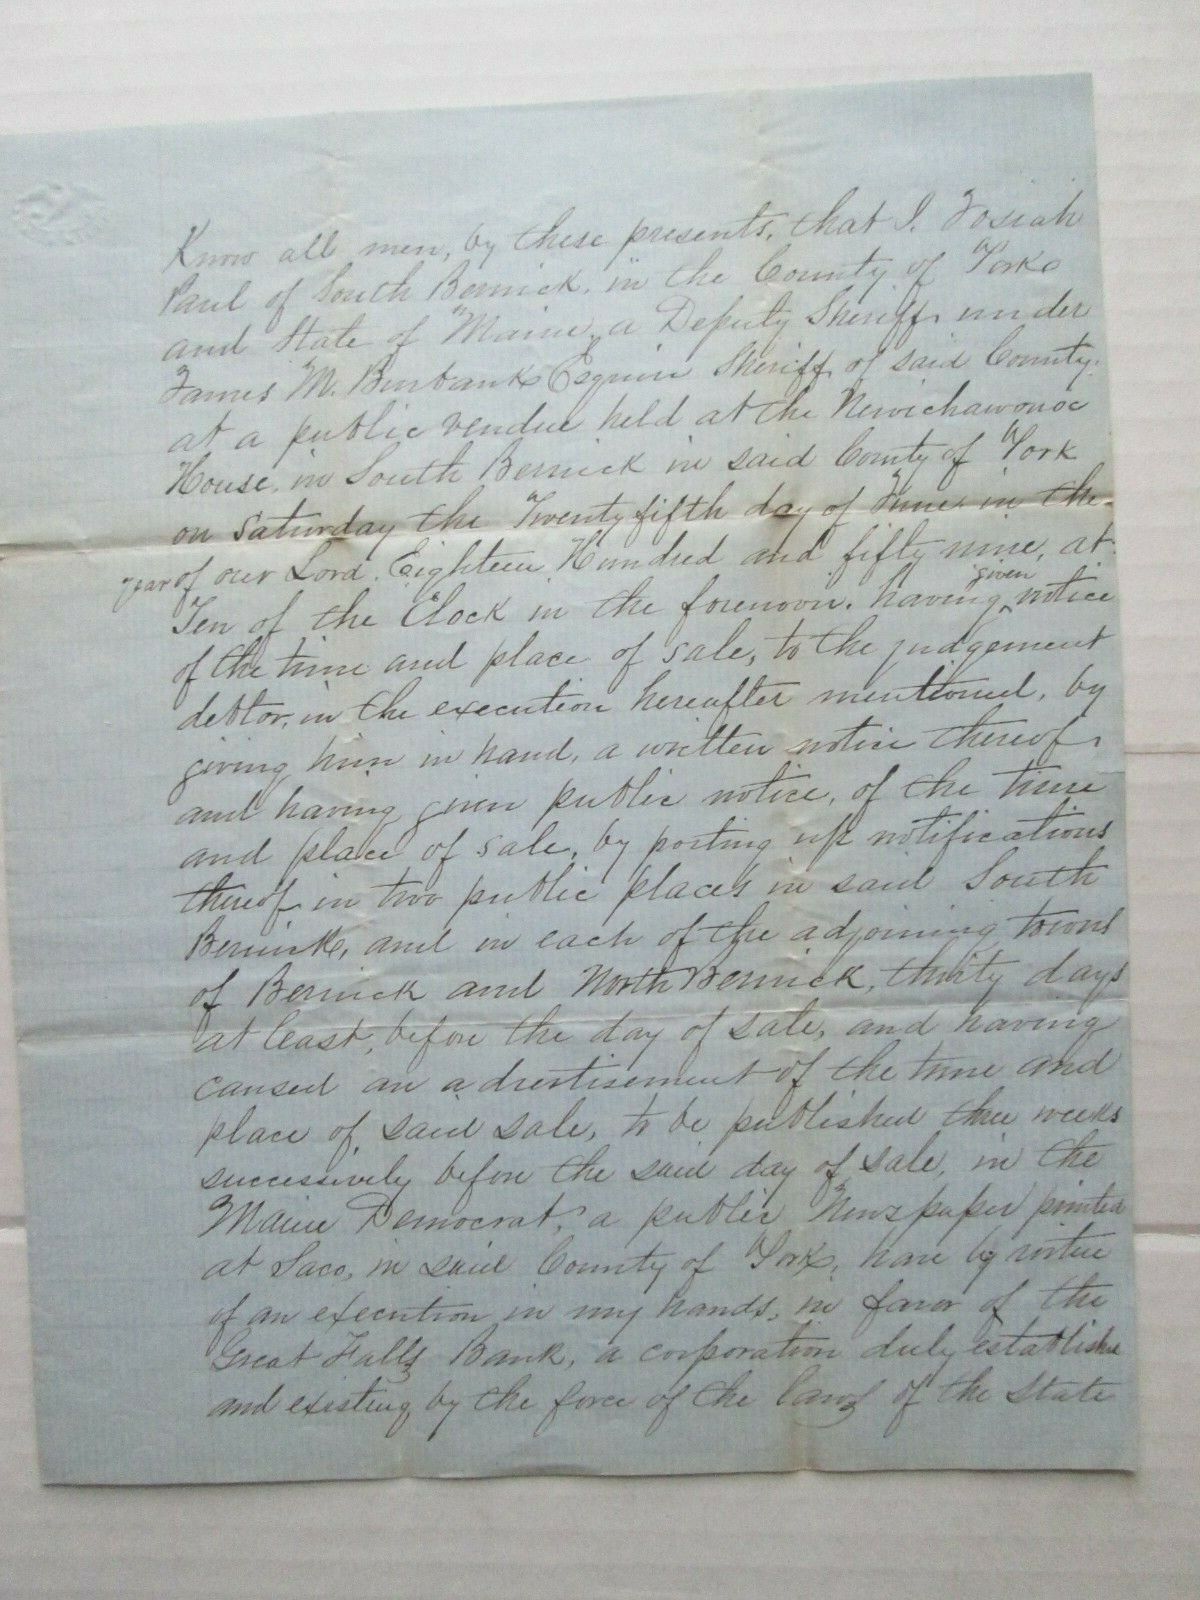 Know all men, by these presents, that I. Josiah
Paul of South Berwick, in the County of York
and State of Maine, a Deputy Sheriff, under
James M. Burbank Esquire Sheriff of said County.
at a public vendue held at the Newichawonoc
House, in South Berwick in said County of York
on Saturday the Twenty fifth day of June in the
year of our Lord Eighteen Hundred and fifty nine, at
given
Ten of the Clock in the forenoon. having ^ notice
of the time and place of sale, to the judgement
debtor, in the execution hereafter mentioned, by
giving him in hand, a written notice thereof,
and having given public notice, of the time
and place of sale, by posting up notifications
thereof in two public places in said South
Berwick, and in each of the adjoining towns
of Berwick and North Berwick, thirty days
at least, before the day of sale, and having
caused an advertisement of the time and
place of said sale, to be published three weeks
successively before the said day of sale, in the
Maine Democrat, a public Newspaper printed
at Saco, in said County of York, have by virtue
of an execution in my hands, in favor of the
Great Falls Bank, a corporation duly established
and existing by the force of the laws of the State